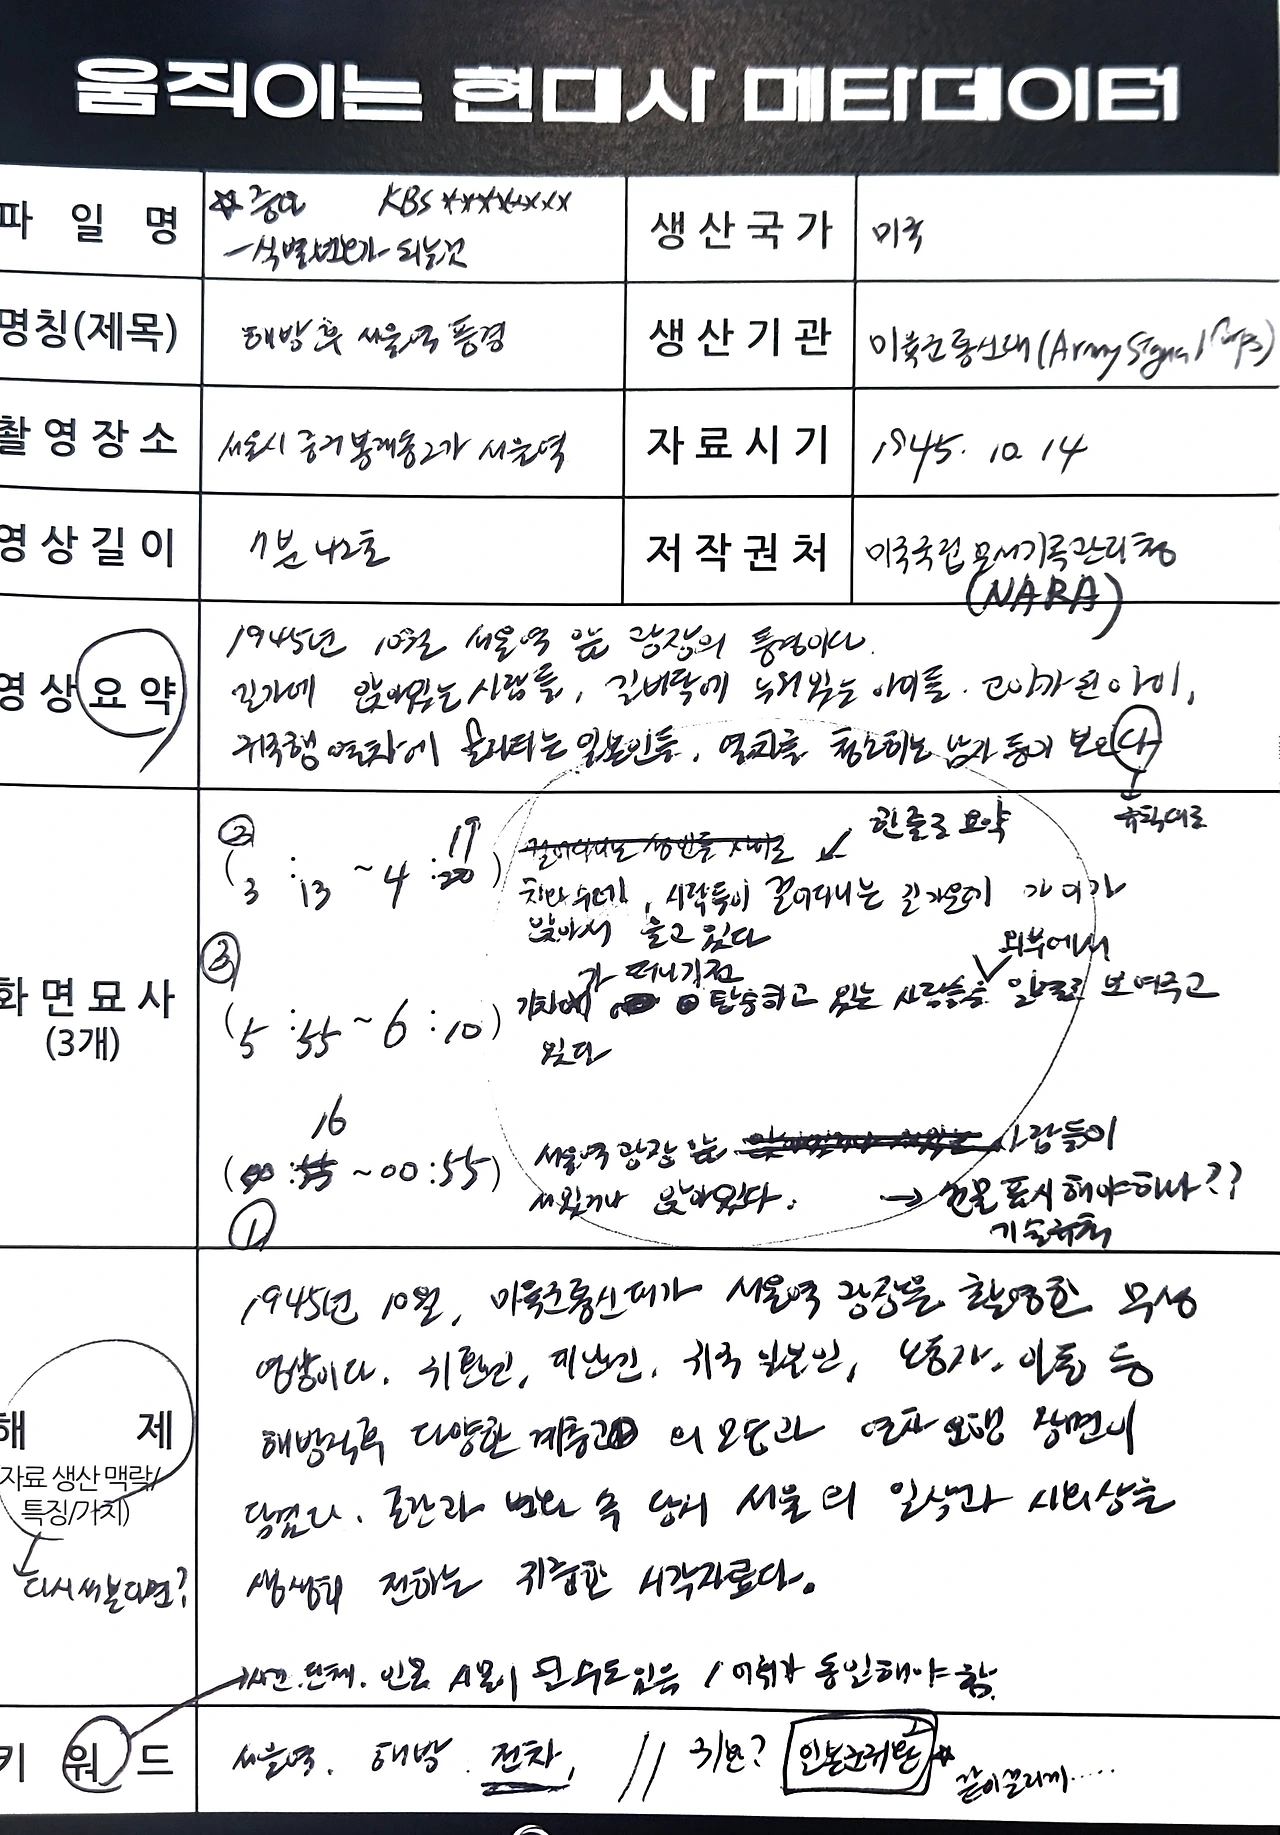 움직이는 현대사 메타데이터
파 일 명
☆ 중요 KBS ********
- 식별번호가 되는것
생 산 국 가
미국
명칭(제목)
해방 후 서울역 풍경
생 산 기 관
미육군통신대(Army Signal Corps)
촬 영 장 소
서울시 중구 봉래동2가 서울역
자 료 시 기
1945. 10. 14
영 상 길 이
7분 42초
저 작 권 처
미국국립문서기록관리청
(NARA)
영 상 요 약
1945년 10월 서울역 앞 광장의 풍경이다.
길가에 앉아있는 사람들, 길바닥에 누워있는 아이들. 고아가 된 아이,
귀국행 열차에 올라타는 일본인들, 열차를 청소하는 남자 등이 보인다
↓
규칙대로
화 면 묘 사
(3개)
②
(3 : 13 ~ 4 : 19)
한줄로 요약
, 사람들이 걸어다니는 길가운데 아이가
앉아서 울고 있다
③
가 떠나기전
외부에서
(5 : 55 ~ 6 : 10)
기차 탑승하고 있는 사람들을 일렬로 보여주고
있다
16
( : ~ 00 : 55)
①
서울역 광장 앞 사람들이
서있거나 앉아있다.
→ 건물 표시 해야하나??
기술규칙
해 제
(자료 생산 맥락/
특징/가치)
↓
다시 써본다면?
1945년 10월, 미육군통신대가 서울역 광장을 촬영한 무성
영상이다. 귀환인, 피난민, 귀국 일본인, 노동자, 아동 등
해방직후 다양한 계층 의 모습과 열차 운행 장면이
담겼다. 혼란과 변화 속 당시 서울의 일상과 사회상을
생생히 전하는 귀중한 시각자료다.
사건. 단체. 인물 사물이 될 수도 있음 / 어휘가 동일해야 함.
키 워 드
서울역. 해방. 전차, // 귀환? 일본군귀환 ☆
같이쓸라게.....